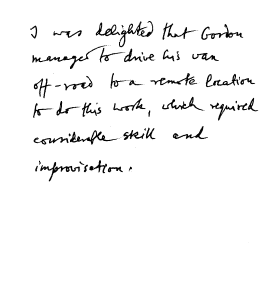 I was delighted that Gordon
managed to drive his van
off-road to a remote location
to do this work, which required
considerable skill and
improvisation.